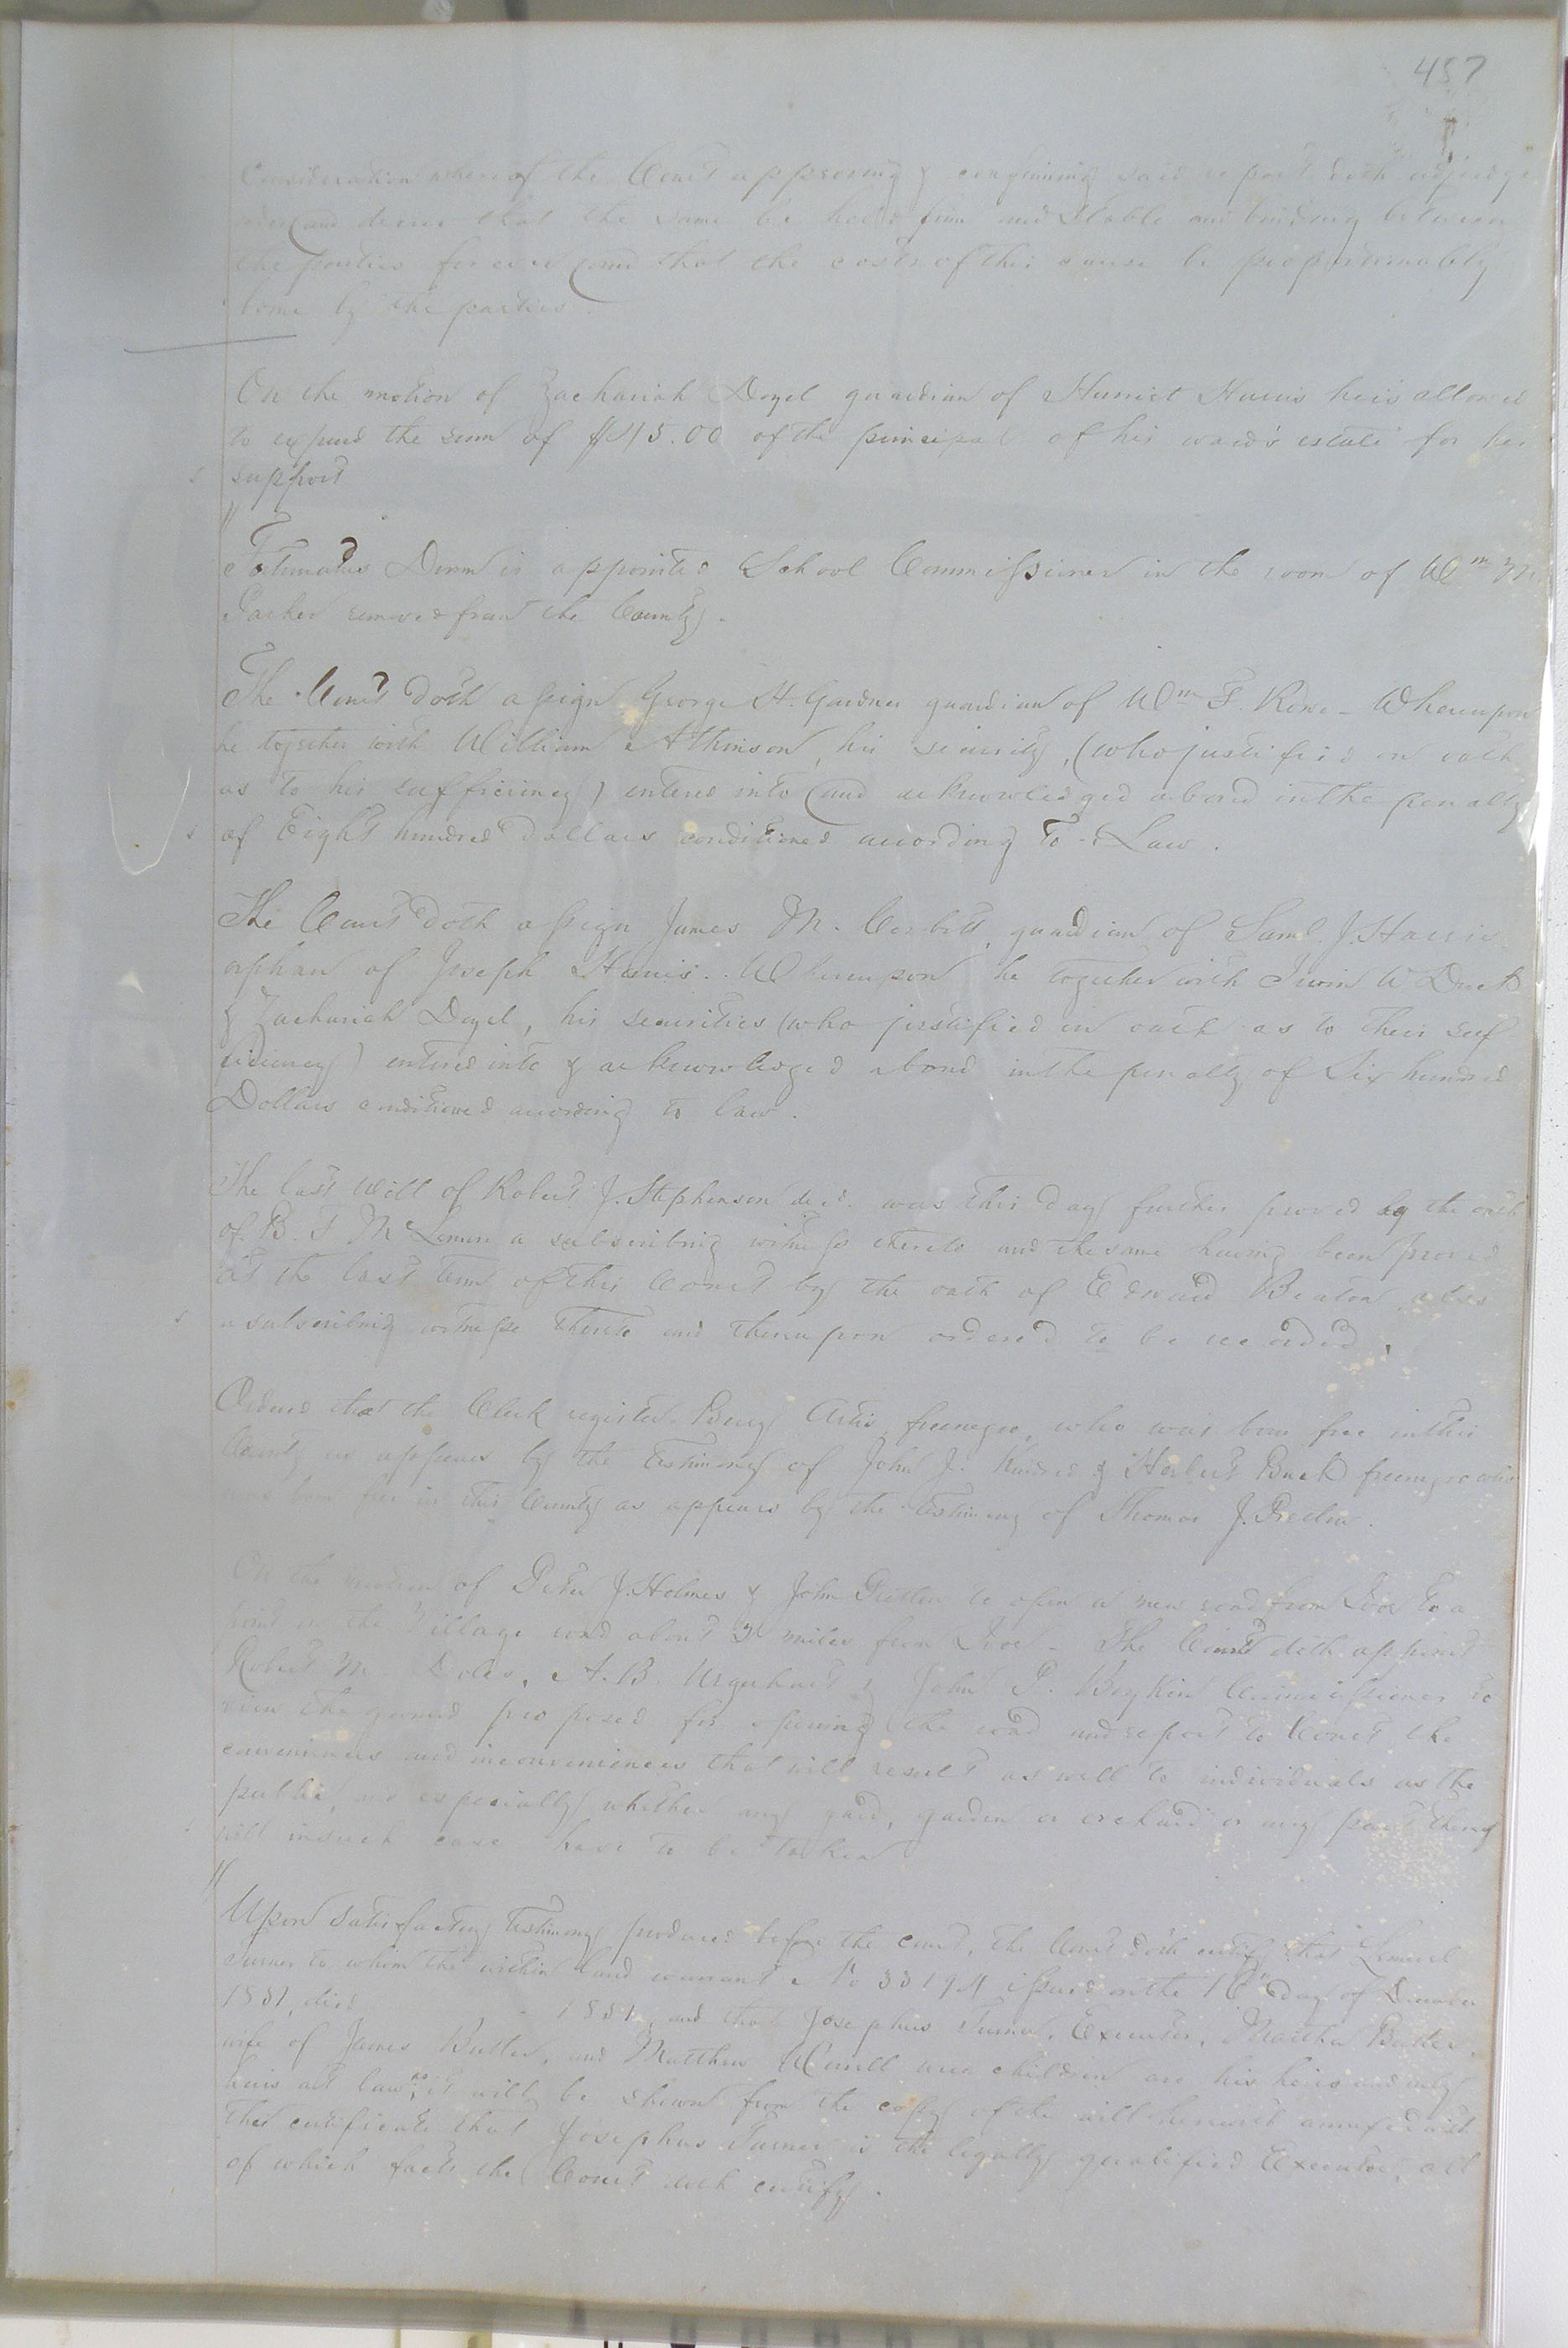 457
Consideration whereof the Court approving & confirming said report doth adjudge
order and decree that the same be held firm and stable and binding between
the parties forever and that the costs of this cause be proportionably
borne by the parties.
On the motion of Zachariah Deyel guardian of Harriet Harris he is allowed
to expend the sum of of the principal of his ward's estate for her
support
Fortunatus Drew is appointed School Commissioner in the room of Wm
Parker removed from the County.
The Court doth assign George H. Gardner guardian of Wm F. Rowe - Whereupon
he together with William Atkinson, his security, (who justified on oath
as to his sufficiency) entered into and acknowledged a bond in the penalty
of Eight hundred Dollars conditioned according to Law.
The Court doth assign James M. Corbitt, guardian of Saml. J. Harris
orphan of Joseph Harris. Whereupon he together with Irwin W Duck
& Zachariah Deyel, his securities (who justified on oath as to their suf
ficiency) entered into & acknowledged a bond in the penalty of Six hundred
Dollars conditioned according to law.
The last Will of Robert J. Stephenson decd. was this day further proved by the oath
of B. F McLemore a subscribing witness thereto and the same having been proved
at the last term of this Court by the oath of Edward Beaton also
a subscribing witness thereto and thereupon ordered to be recorded.
Ordered that the Clerk register Artis free negro, who was born free in this
County as appears by the testimony of John J. Kindred & Herbert free negro who
was born free in this County as appears by the testimony of Thomas J. Pretlow.
On the motion of Peter J. Holmes & John Pretlow to open a new road from Ivor to a
point on the Village road about 3 miles from Ivor - The Court doth appoint
Robert M Doles, A. B. Urquhart & John P. Boykin Commissioners to
view the ground proposed for opening the road and report to Court the
conveniences and inconveniences that will result as well to individuals as the
public, and especially whether any yard, garden or orchard or any part thereof
will in such case have to be taken
Upon satisfactory testimony produced before the court, the Court doth certify that Lemuel
Turner to whom the within land warrant No issued on the 16th day of December
1851, died 1851, and that Josephus Turner, Executor, Martha Butler,
wife of James Butler, and Matthew Worrell and children are his heirs and only
heirs at law, as it will be shown from the copy of the will herewith annexed with
this certificate that Josephus Turner is the legally qualified Executor, all
of which facts the Court doth certify.